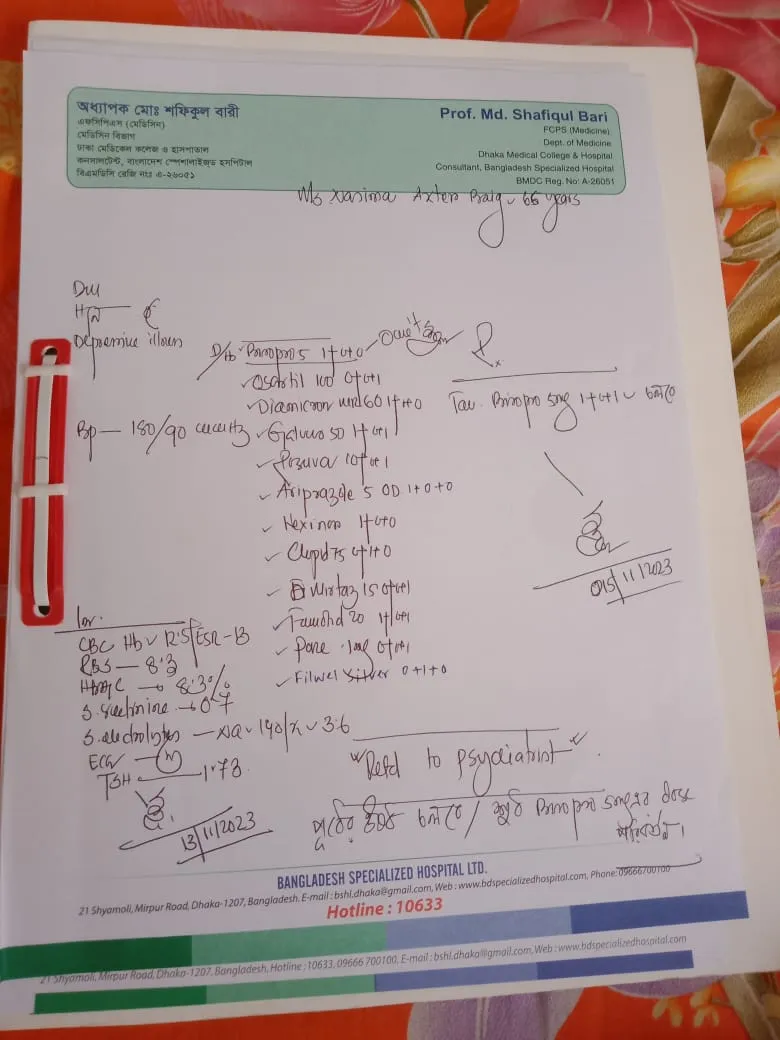 অধ্যাপক মোঃ শফিকুল বারী
এফসিপিএস (মেডিসিন)
মেডিসিন বিভাগ
ঢাকা মেডিকেল কলেজ ও হাসপাতাল
কনসালটেন্ট, বাংলাদেশ স্পেশালাইজড হসপিটাল
বিএমডিসি রেজি নংঃ এ-২৬০৫১
Prof. Md. Shafiqul Bari
FCPS (Medicine)
Dept. of Medicine
Dhaka Medical College & Hospital
Consultant, Bangladesh Specialized Hospital
BMDC Reg. No: A-26051
66 years
DM
HTN
BP — 180/90 mmHg
D/Hb
Binopro 5 1+0+0
Osartil 100 0+0+1
Diamicron MR 60 1+0+0
Galvus 50 1+0+1
Rozuva 10 0+0+1
Ariprazole 5 OD 1+0+0
Hexinor 1+0+0
Clopid 75 0+1+0
Mirtaz 15 0+0+1
Famotid 20 1+0+1
Pase 1mg 0+0+1
Filwel Silver 0+1+0
Rx
Tab. Binopro 5mg 1+0+1 চলবে
05/11/2023
Inv.
CBC Hb 12.5/ESR-13
RBS — 8.3
HbA1C → 8.3%
S. creatinine → 0.7
S. electrolytes — Na 140/K 3.6
ECG — (N)
TSH — 1.73
13/11/2023
"Refd to psychiatrist"
পূর্বের ঔষধ চলবে / শুধু Binopro 5mg এর dose পরিবর্তন।
BANGLADESH SPECIALIZED HOSPITAL LTD.
21 Shyamoli, Mirpur Road, Dhaka-1207, Bangladesh. E-mail : bshl.dhaka@gmail.com, Web : www.bdspecializedhospital.com, Phone: 09666700100
Hotline : 10633
21 Shyamoli, Mirpur Road, Dhaka-1207, Bangladesh, Hotline : 10633, 09666 700100, E-mail : bshl.dhaka@gmail.com, Web : www.bdspecializedhospital.com